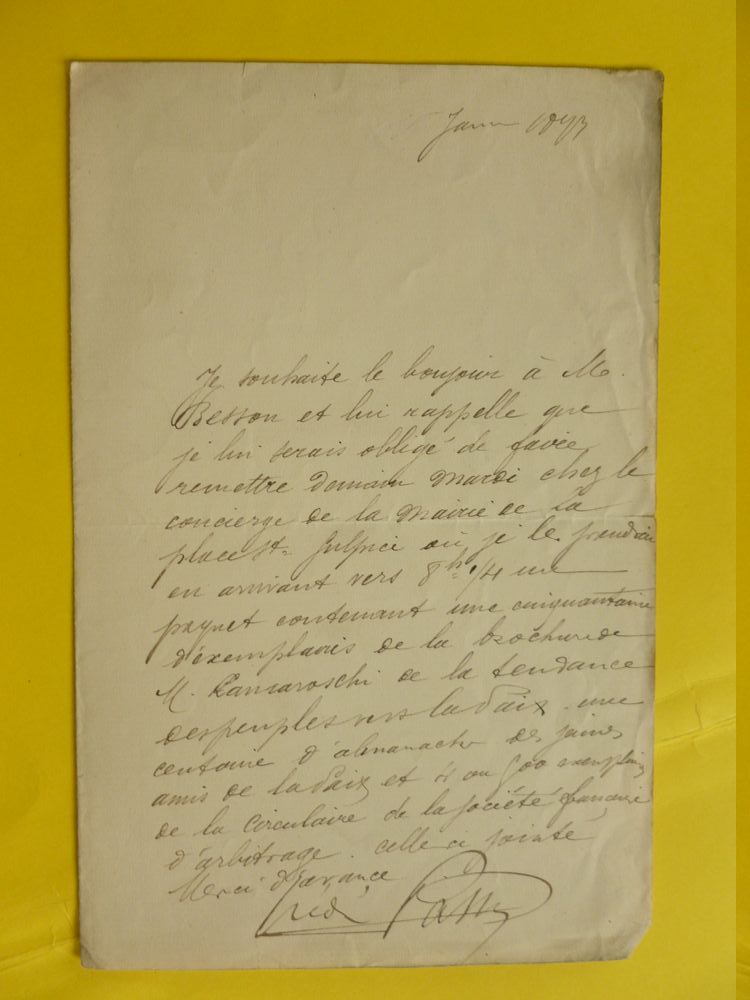 Janv 1893
Je souhaite le bonjour à M.
Besson et lui rappelle que
je lui serais obligé de faire
remettre demain mardi chez le
concierge de la Mairie de la
place St. Sulpice où je le prendrai
en arrivant vers 8h 1/4 un
paquet contenant une cinquantaine
d'exemplaires de la brochure de
M. Kamaroschi de la tendance
des peuples vers la Paix. une
centaine d'almanachs des jeunes
amis de la Paix et ou 500 exemplaires
de la Circulaire de la société française
d'arbitrage. celle ci jointe
Merci d'avance
Fréd Passy